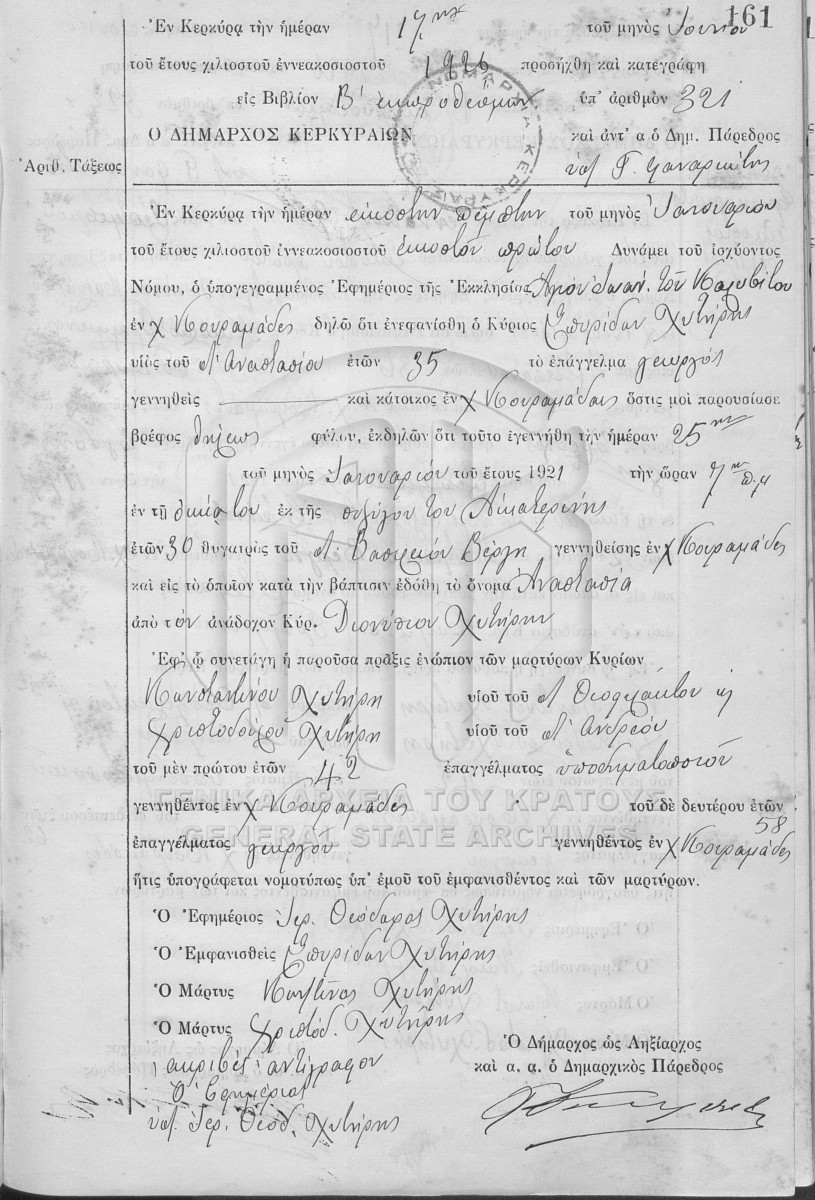 161
Ἐν Κερκύρᾳ τὴν ἡμέραν 17ην τοῦ μηνὸς Ἰουνίου
τοῦ ἔτους χιλιοστοῦ ἐννεακοσιοστοῦ 1926 προσήχθη καὶ κατεγράφη
εἰς Βιβλίον Β' ἐκπροθέσμων ὑπ' ἀριθμὸν 321
Ο ΔΗΜΑΡΧΟΣ ΚΕΡΚΥΡΑΙΩΝ καὶ ἀντ' α ὁ Δημ. Πάρεδρος
Ἀριθ. Τάξεως
Ἐν Κερκύρᾳ τὴν ἡμέραν εἰκοστὴν πέμπτην τοῦ μηνὸς Ἰανουαρίου
τοῦ ἔτους χιλιοστοῦ ἐννεακοσιοστοῦ εἰκοστοῦ πρώτου Δυνάμει τοῦ ἰσχύοντος
Νόμου, ὁ ὑπογεγραμμένος Ἐφημέριος τῆς Ἐκκλησίας Ἁγίου Ἰωάν. τοῦ Καλυβίτου
ἐν χ Κουραμάδες δηλῶ ὅτι ἐνεφανίσθη ὁ Κύριος Σπυρίδων Χυτήρης
υἱὸς τοῦ π. Ἀναστασίου ἐτῶν 35 τὸ ἐπάγγελμα γεωργός
γεννηθεὶς καὶ κάτοικος ἐν χ Κουραμάδας ὅστις μοὶ παρουσίασε
βρέφος θήλεως φύλου, ἐκδηλῶν ὅτι τοῦτο ἐγεννήθη τὴν ἡμέραν 25ην
τοῦ μηνὸς Ἰανουαρίου τοῦ ἔτους 1921 τὴν ὥραν 7ην π.μ
ἐν τῇ οἰκίᾳ του ἐκ τῆς συζύγου του Αἰκατερίνης
ἐτῶν 30 θυγατρὸς τοῦ π. Βασιλείου Βέργη γεννηθείσης ἐν χ Κουραμάδες
καὶ εἰς τὸ ὁποῖον κατὰ τὴν βάπτισιν ἐδόθη τὸ ὄνομα Ἀναστασία
ἀπὸ τὸν ἀνάδοχον Κύρ. Διονύσιον Χυτήρην
Ἐφ' ᾧ συνετάγη ἡ παροῦσα πρᾶξις ἐνώπιον τῶν μαρτύρων Κυρίων
Κωνσταντίνου Χυτήρη υἱοῦ τοῦ π. Θεοφιλάκτου ἢ
Χριστοδούλου Χυτήρη υἱοῦ τοῦ π. Ἀνδρέου
τοῦ μὲν πρώτου ἐτῶν 42 ἐπαγγέλματος ὑποδηματοποιοῦ
γεννηθέντος ἐν χ Κουραμάδες τοῦ δὲ δευτέρου ἐτῶν 58
ΓΕΝΙΚΑ ΑΡΧΕΙΑ ΤΟΥ ΚΡΑΤΟΥΣ
GENERAL STATE ARCHIVES
ἐπαγγέλματος γεωργοῦ γεννηθέντος ἐν χ Κουραμάδες
ἥτις ὑπογράφεται νομοτύπως ὑπ' ἐμοῦ τοῦ ἐμφανισθέντος καὶ τῶν μαρτύρων.
Ὁ Ἐφημέριος Ἱερ. Θεόδωρος Χυτήρης
Ὁ Ἐμφανισθεὶς Σπυρίδων Χυτήρης
Ὁ Μάρτυς Κωνστῖνος Χυτήρης
Ὁ Μάρτυς Χριστόδ. Χυτήρης
Ὁ Δήμαρχος ὡς Ληξίαρχος
καὶ α. α. ὁ Δημαρχικὸς Πάρεδρος
ἀκριβὲς ἀντίγραφον
Ὁ Ἐφημέριος
ὑπ. Ἱερ. Θεόδ. Χυτήρης